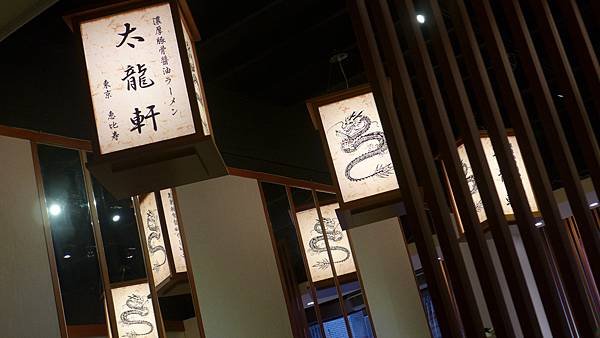 濃厚豚骨醬油ラーメン
太龍軒
東京 恵比寿